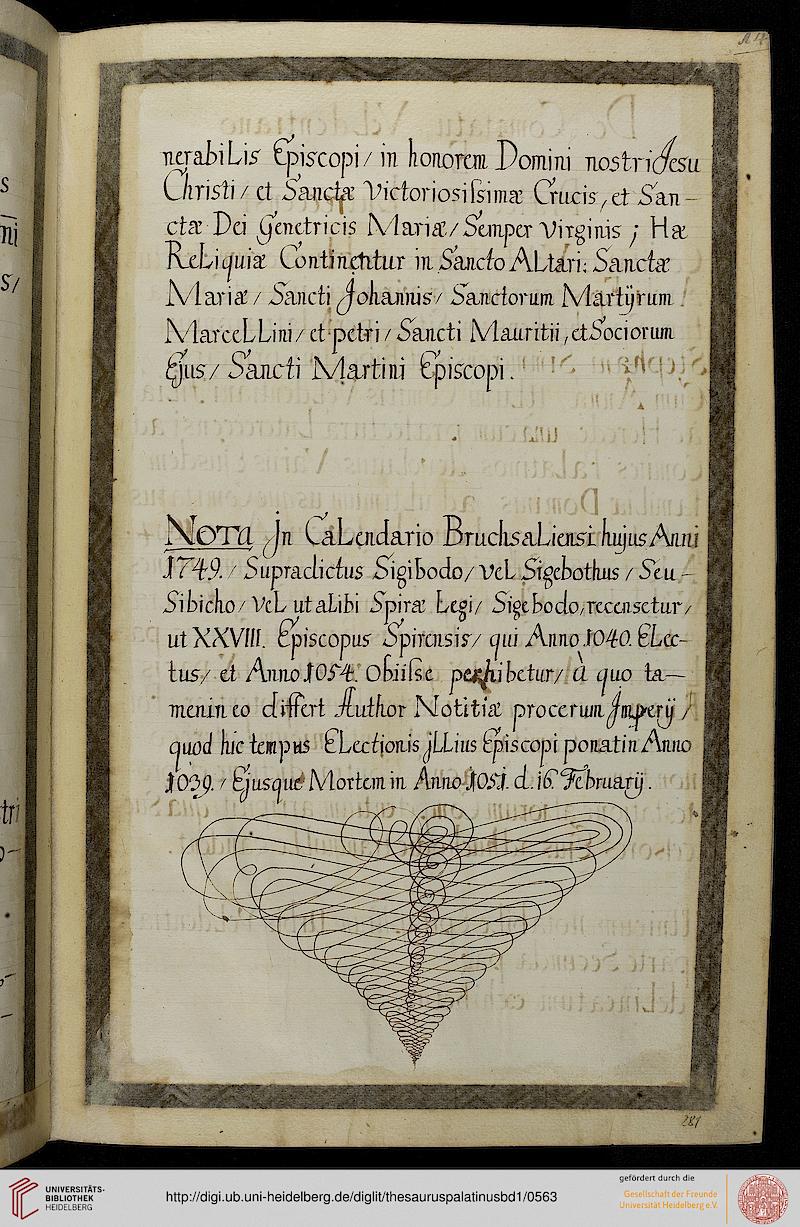 nerabiLis Episcopi / in honorem Domini nostri Jesu
Christi / et Sanctæ Victoriosissimæ Crucis, et San-
ctæ Dei Genetricis Mariæ / Semper Virginis ; Hæ
ReLiquiæ Continentur in Sancto ALtari: Sanctæ
Mariæ / Sancti Johannis / Sanctorum Martÿrum
MarceLLini / et petri / Sancti Mauritii, et Sociorum
Ejus / Sancti Martini Episcopi.
NOTA Jn CaLendario BruchsaLiensi hujus Anni
1749. / Supradictus Sigibodo / veL Sigebothus / Seu -
Sibicho / veL ut aLibi Spiræ Legi / Sigebodo, recensetur /
ut XXVIII. Episcopus Spirensis / qui Anno 1040. ELec-
tus / et Anno 1054. Obiisse perhibetur / à quo ta-
men in eo differt Author Notitiæ procerum Jmperÿ /
quod hic tempus ELectionis jLLius Episcopi ponat in Anno
1039. / Ejusque Mortem in Anno 1051. d. 16. Februarÿ.
281
UNIVERSITÄTS-
BIBLIOTHEK
HEIDELBERG
http://digi.ub.uni-heidelberg.de/diglit/thesauruspalatinusbd1/0563
gefördert durch die
Gesellschaft der Freunde
Universität Heidelberg e.V.